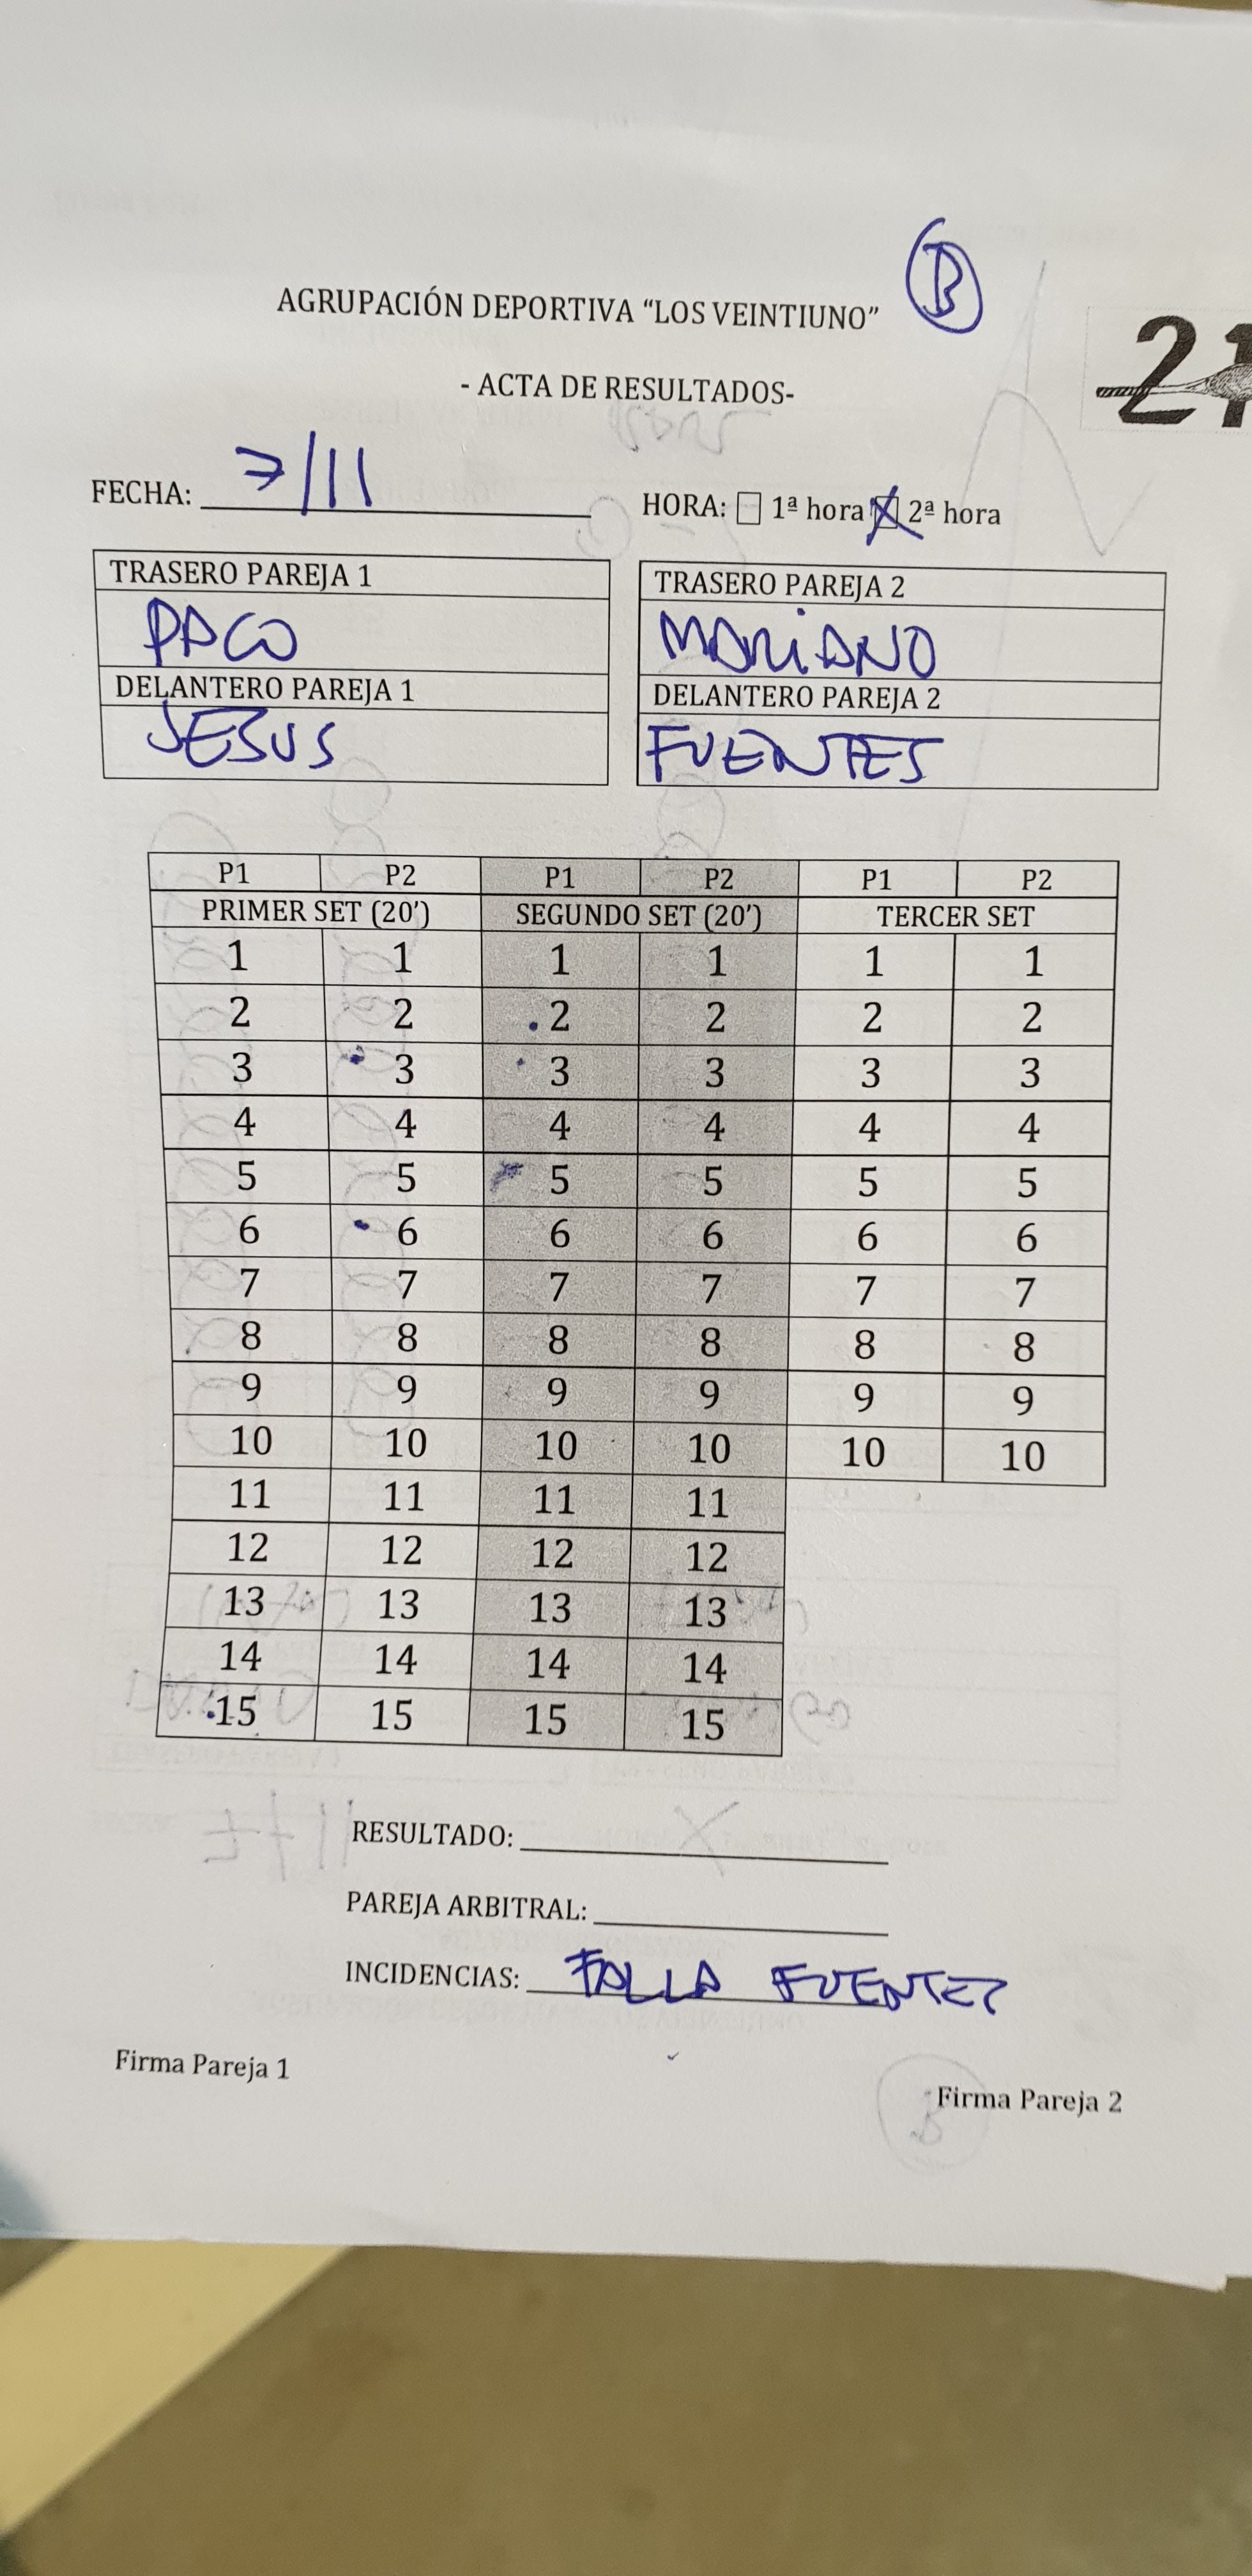 B
AGRUPACIÓN DEPORTIVA “LOS VEINTIUNO”
21
- ACTA DE RESULTADOS-
FECHA: 7/11 HORA: 1ª hora X 2ª hora
TRASERO PAREJA 1 TRASERO PAREJA 2
PACO MARIANO
DELANTERO PAREJA 1 DELANTERO PAREJA 2
JESUS FUENTES
P1 P2 P1 P2 P1 P2
PRIMER SET (20’) SEGUNDO SET (20’) TERCER SET
1 1 1 1 1 1
2 2 2 2 2 2
3 3 3 3 3 3
4 4 4 4 4 4
5 5 5 5 5 5
6 6 6 6 6 6
7 7 7 7 7 7
8 8 8 8 8 8
9 9 9 9 9 9
10 10 10 10 10 10
11 11 11 11
12 12 12 12
13 13 13 13
14 14 14 14
15 15 15 15
RESULTADO:
PAREJA ARBITRAL:
INCIDENCIAS: FALLA FUENTES
Firma Pareja 1 Firma Pareja 2